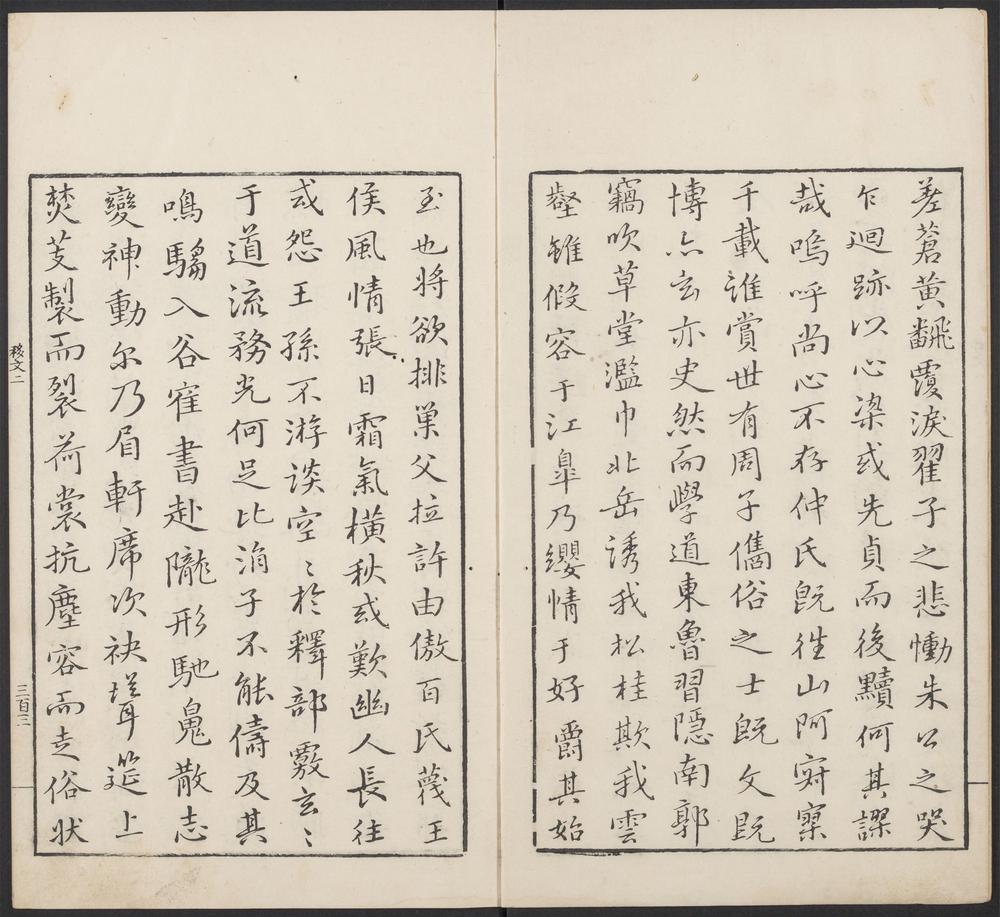 差蒼黄飜覆淚翟子之悲慟朱公之哭
乍迴跡以心染或先貞而後黷何其謬
哉嗚呼尚心不存仲氏既往山阿寂寥
千載誰賞世有周子儁俗之士既文既
博亦玄亦史然而學道東魯習隱南郭
竊吹草堂濫巾北岳誘我松桂欺我雲
壑雖假容于江皐乃纓情于好爵其始
至也將欲排巢父拉許由傲百氏蔑王
侯風情張日霜氣横秋或歎幽人長往
或怨王孫不游談空〻於釋部覈玄〻
于道流務光何足比涓子不能儔及其
鳴騶入谷隺書赴隴形馳鬼散志
變神動尔乃眉軒席次袂聳筵上
焚芰製而裂荷裳抗塵容而走俗狀
移文二
三百三